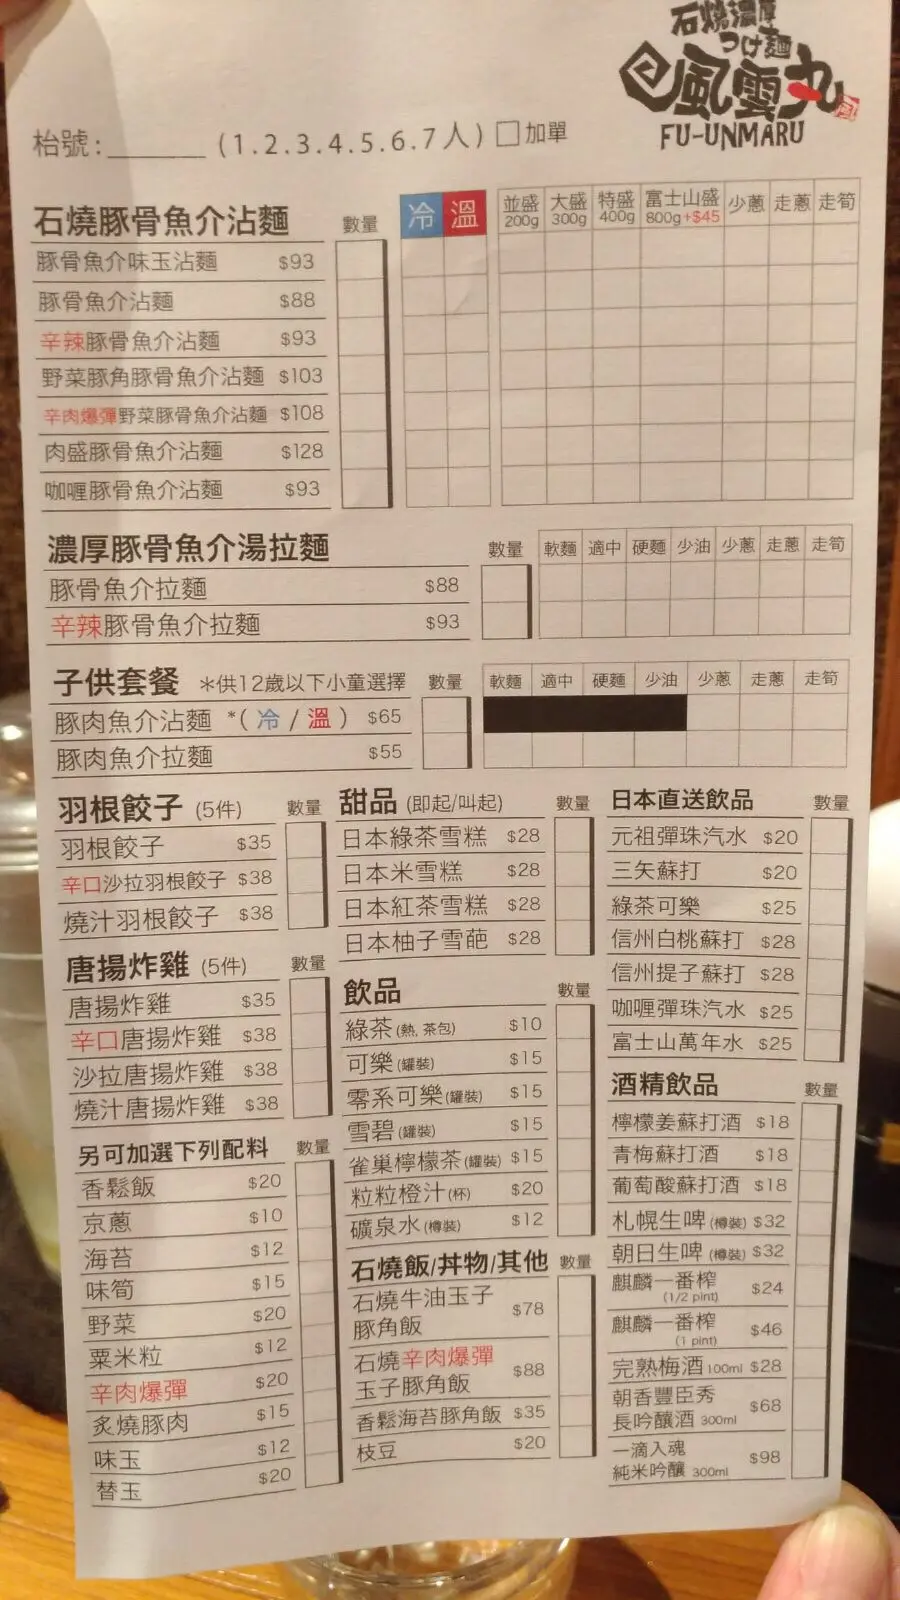 石燒濃厚
つけ麵
風雲丸
FU-UNMARU
枱號:______ (1.2.3.4.5.6.7人) 加單
石燒豚骨魚介沾麵 數量 冷 溫 並盛 200g 大盛 300g 特盛 400g 富士山盛 800g+$45 少蔥 走蔥 走筍
豚骨魚介味玉沾麵 $93
豚骨魚介沾麵 $88
辛辣豚骨魚介沾麵 $93
野菜豚角豚骨魚介沾麵 $103
辛肉爆彈野菜豚骨魚介沾麵 $108
肉盛豚骨魚介沾麵 $128
咖喱豚骨魚介沾麵 $93
濃厚豚骨魚介湯拉麵 數量 軟麵 適中 硬麵 少油 少蔥 走蔥 走筍
豚骨魚介拉麵 $88
辛辣豚骨魚介拉麵 $93
子供套餐 *供12歲以下小童選擇 數量 軟麵 適中 硬麵 少油 少蔥 走蔥 走筍
豚肉魚介沾麵 *(冷/溫) $65
豚肉魚介拉麵 $55
羽根餃子 (5件) 數量
羽根餃子 $35
辛口沙拉羽根餃子 $38
燒汁羽根餃子 $38
唐揚炸雞 (5件) 數量
唐揚炸雞 $35
辛口唐揚炸雞 $38
沙拉唐揚炸雞 $38
燒汁唐揚炸雞 $38
另可加選下列配料 數量
香鬆飯 $20
京蔥 $10
海苔 $12
味筍 $15
野菜 $20
粟米粒 $12
辛肉爆彈 $20
炙燒豚肉 $15
味玉 $12
替玉 $20
甜品 (即起/叫起) 數量
日本綠茶雪糕 $28
日本米雪糕 $28
日本紅茶雪糕 $28
日本柚子雪葩 $28
飲品 數量
綠茶(熱, 茶包) $10
可樂(罐裝) $15
零系可樂(罐裝) $15
雪碧(罐裝) $15
雀巢檸檬茶(罐裝) $15
粒粒橙汁(杯) $20
礦泉水(樽裝) $12
石燒飯/丼物/其他 數量
石燒牛油玉子
豚角飯 $78
石燒辛肉爆彈
玉子豚角飯 $88
香鬆海苔豚角飯 $35
枝豆 $20
日本直送飲品 數量
元祖彈珠汽水 $20
三矢蘇打 $20
綠茶可樂 $25
信州白桃蘇打 $28
信州提子蘇打 $28
咖喱彈珠汽水 $25
富士山萬年水 $25
酒精飲品 數量
檸檬姜蘇打酒 $18
青梅蘇打酒 $18
葡萄酸蘇打酒 $18
札幌生啤(樽裝) $32
朝日生啤(樽裝) $32
麒麟一番榨
(1/2 pint) $24
麒麟一番榨
(1 pint) $46
完熟梅酒100ml $28
朝香豐臣秀
長吟釀酒 300ml $68
一滴入魂
純米吟釀 300ml $98